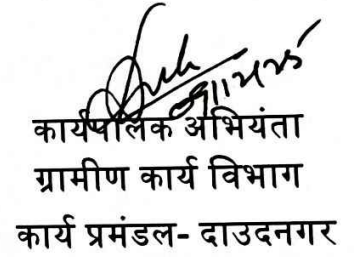 कार्यपालक अभियंता
ग्रामीण कार्य विभाग
कार्य प्रमंडल- दाउदनगर